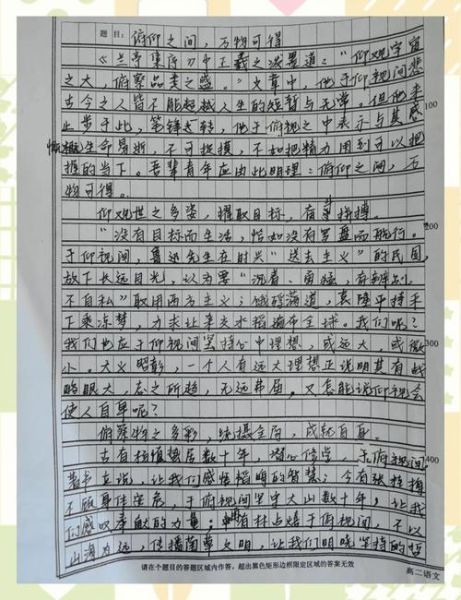 题目：俯仰之间，万物可得
《兰亭集序》中王羲之泼墨道："仰观宇宙
之大，俯察品类之盛。"文章中，他于仰视间悲
古今之人皆不能超越人生的短暂与无常。但他未
止步于此，笔锋之转，他于俯视之中表示与其感
慨生命易逝，不可捉摸，不如把精力用到可以把
握的当下。吾辈青年应由此明理：俯仰之间，万
物可得。
仰观世之多姿，择取目标，有斗拼搏。
"没有目标而生活，恰如没有罗盘而航行。"
于仰视间，鲁迅先生在时兴"送去主义"的民国，
放下长远目光，认为要"沉着、勇猛，有辨别，
不自私"取用西方主义；饿殍满道，袁隆平
下乘凉梦，力求让杂交水稻遍布全球。我们呢？
我们也应于仰视间坚持心中理想，或远大，或微
小。大义昭彰，一个人有远大理想正说明其有战
略眼大，志之所趋，无远弗届，又怎能说仰视会
使人自卑呢？
俯察物之多彩，统摄全局，成就自身。
古有杨慎
著书立说，让我们感悟 的智慧；今有张桂梅
不顾身体 ，于俯视间坚守大山数十年，让我
们感叹奉献的力量；有林占熺于俯视间，不以
山海为远，传播菌草文明，让我们明晓坚持的
100
200
300
400
请在个题目的答题区域内作答，超出黑色矩形边框限定区域的答案无效
高二语文